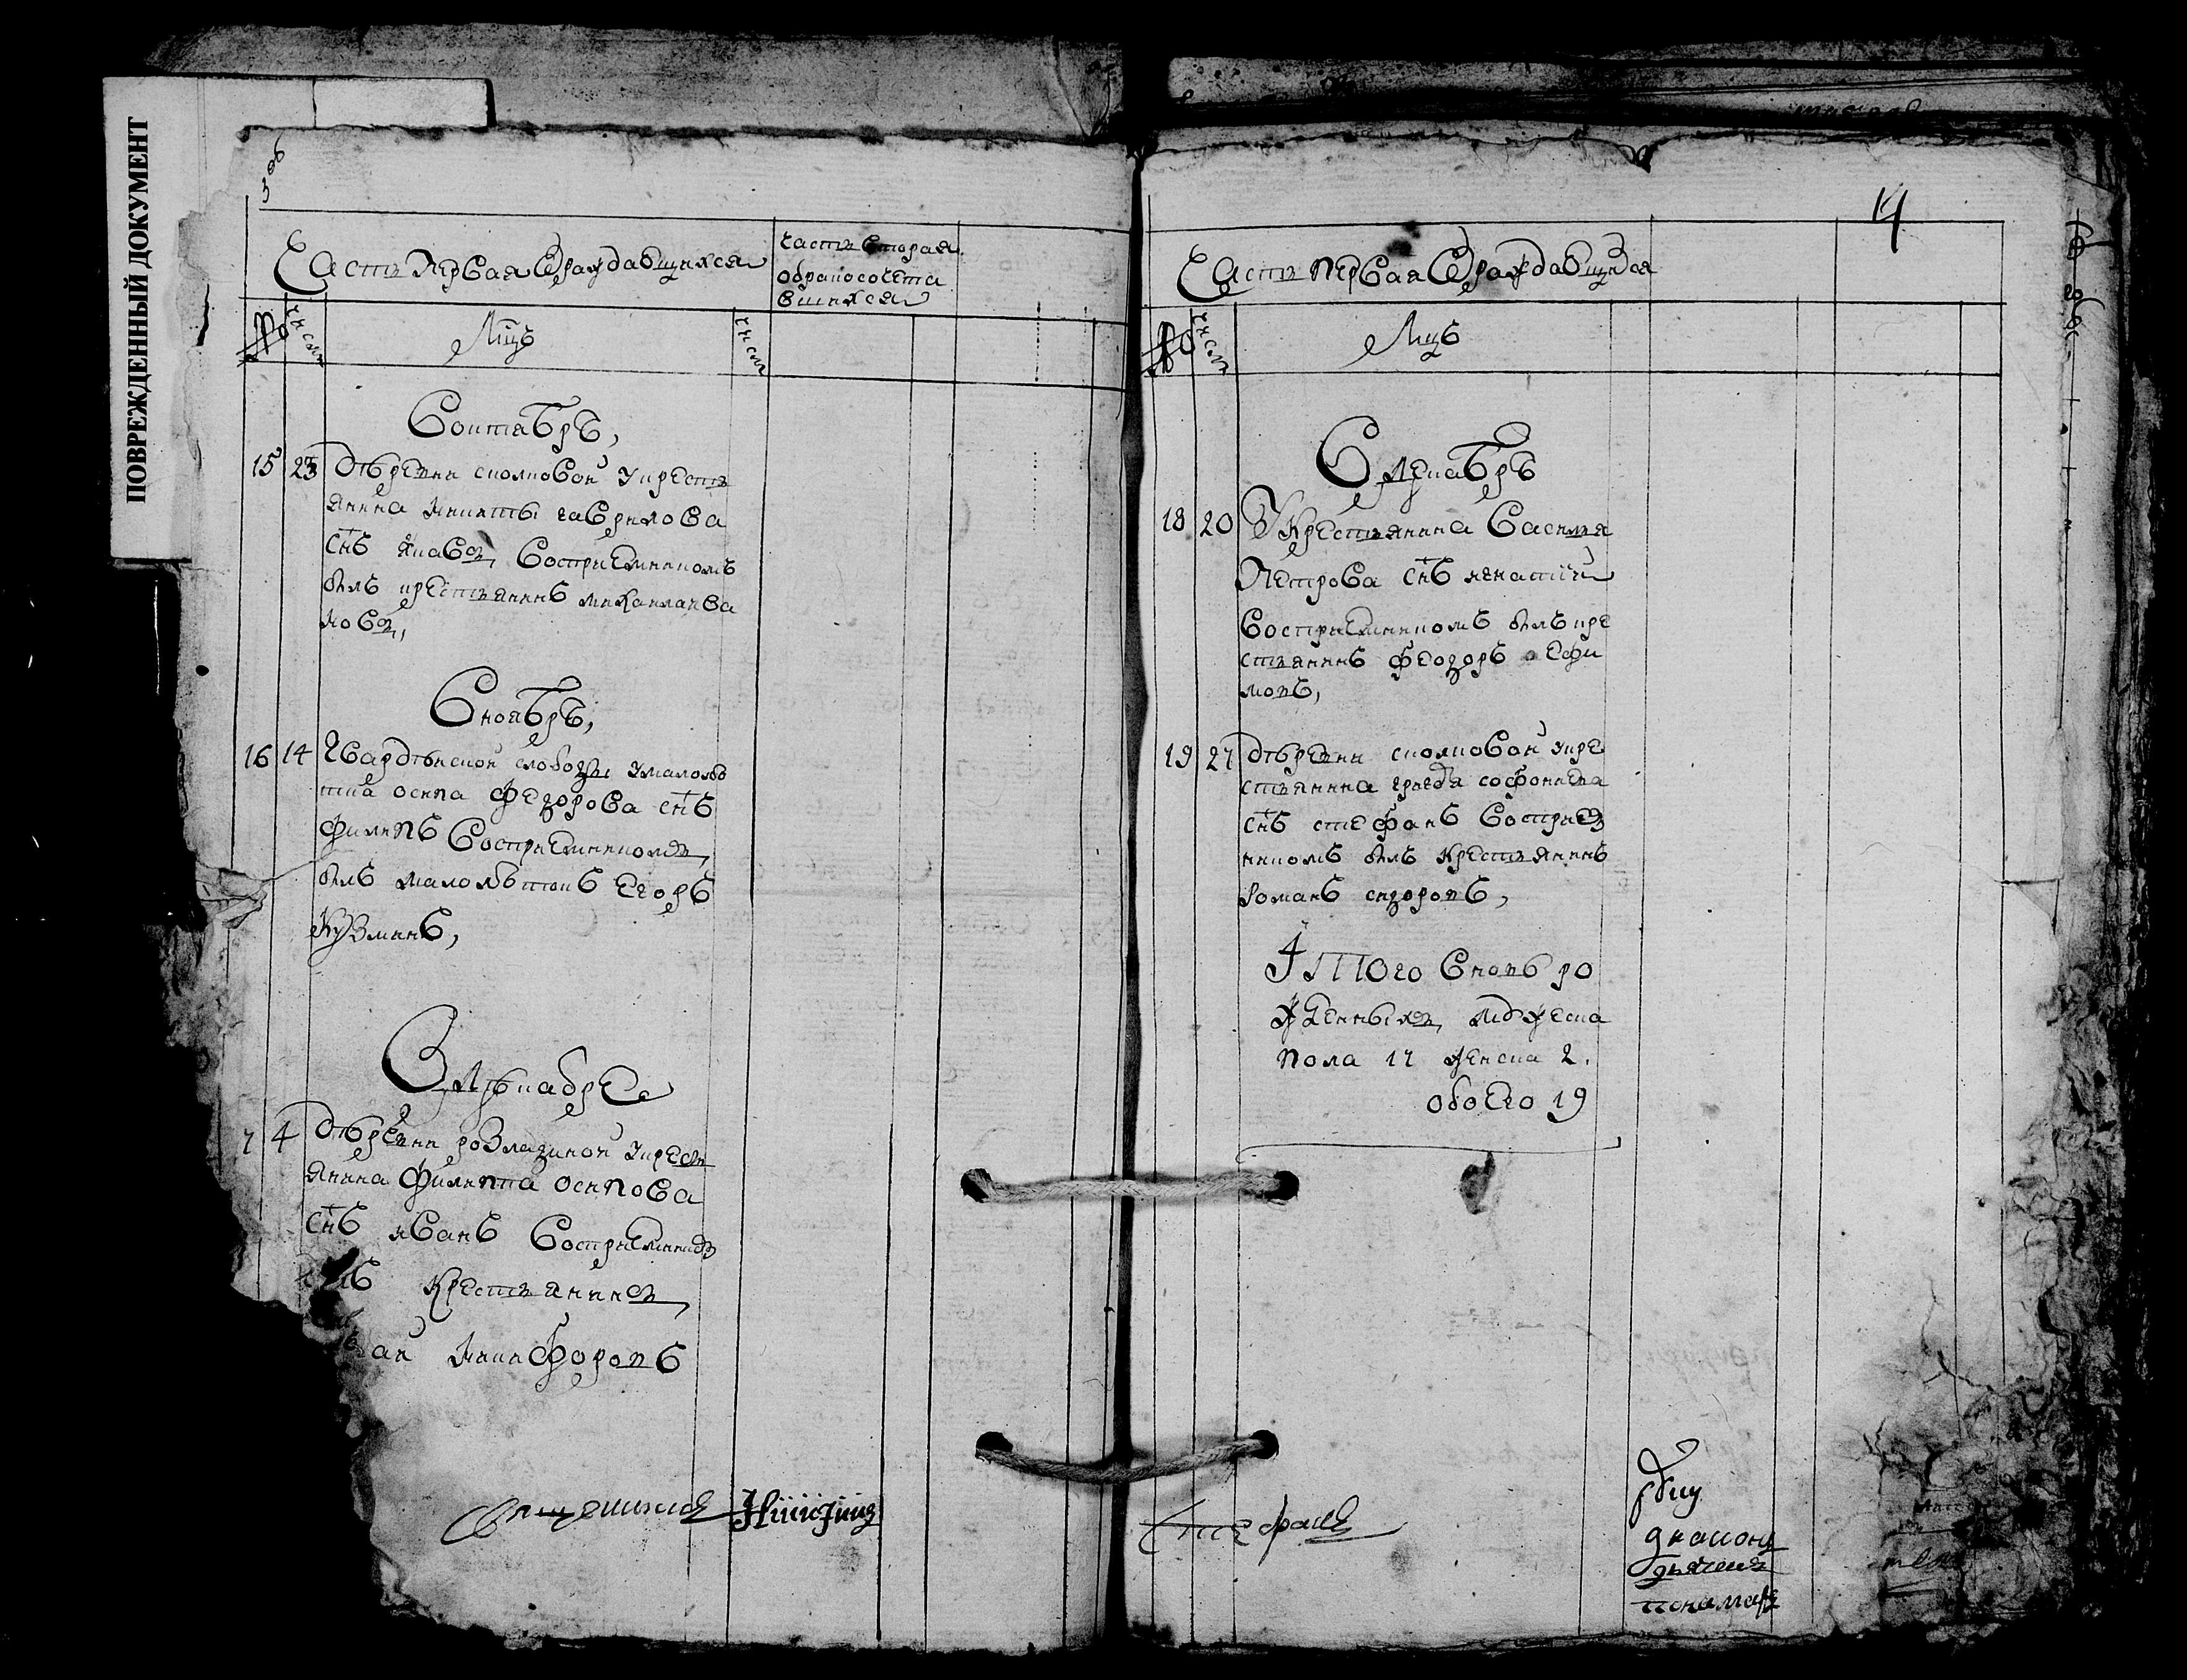 ПОВРЕЖДЕННЫЙ ДОКУМЕНТ
Часть первая Ораждавшихся
часть вторая
обракосочета
вшихся
№
числа
Лицъ
числа
Воктябръ,
15 23 Дѣревни сколковой Укресть
янина Никиты гаврилова
снъ яковъ, Восприемникомъ
былъ крестьянинъ михаила ива
новъ,
Вноябръ,
16 14 Гвардѣиской слободы Умалолѣ
тка осипа федорова снъ
филипъ Восприемникомъ,
былъ малолѣтокъ Егоръ
Кузминъ,
ВДѣкабре
7 4 Дѣревни розладиной Укресть
янина Филиппа осипова
снъ иванъ Восприемникъ
Крестьянинъ,
Никифоровъ
Священникъ
14
Часть первая Ораждавшихся
№
числа
Лицъ
В Декабръ
18 20 У Крестьянина Василья
Петрова снъ игнатий
Восприемникомъ былъ кре
стьянинъ феодоръ ефи
мовъ,
19 27 Дѣревни сколковой укре
стьянина софониева
снъ стефанъ Восприем
никомъ былъ Крестьянинъ
Романъ сидоровъ,
Итого Вновъ ро
жденныхъ, мужеска
пола 17 женска 2.
обоего 19
Стефанъ
диаконъ
дьячекъ
пономарь